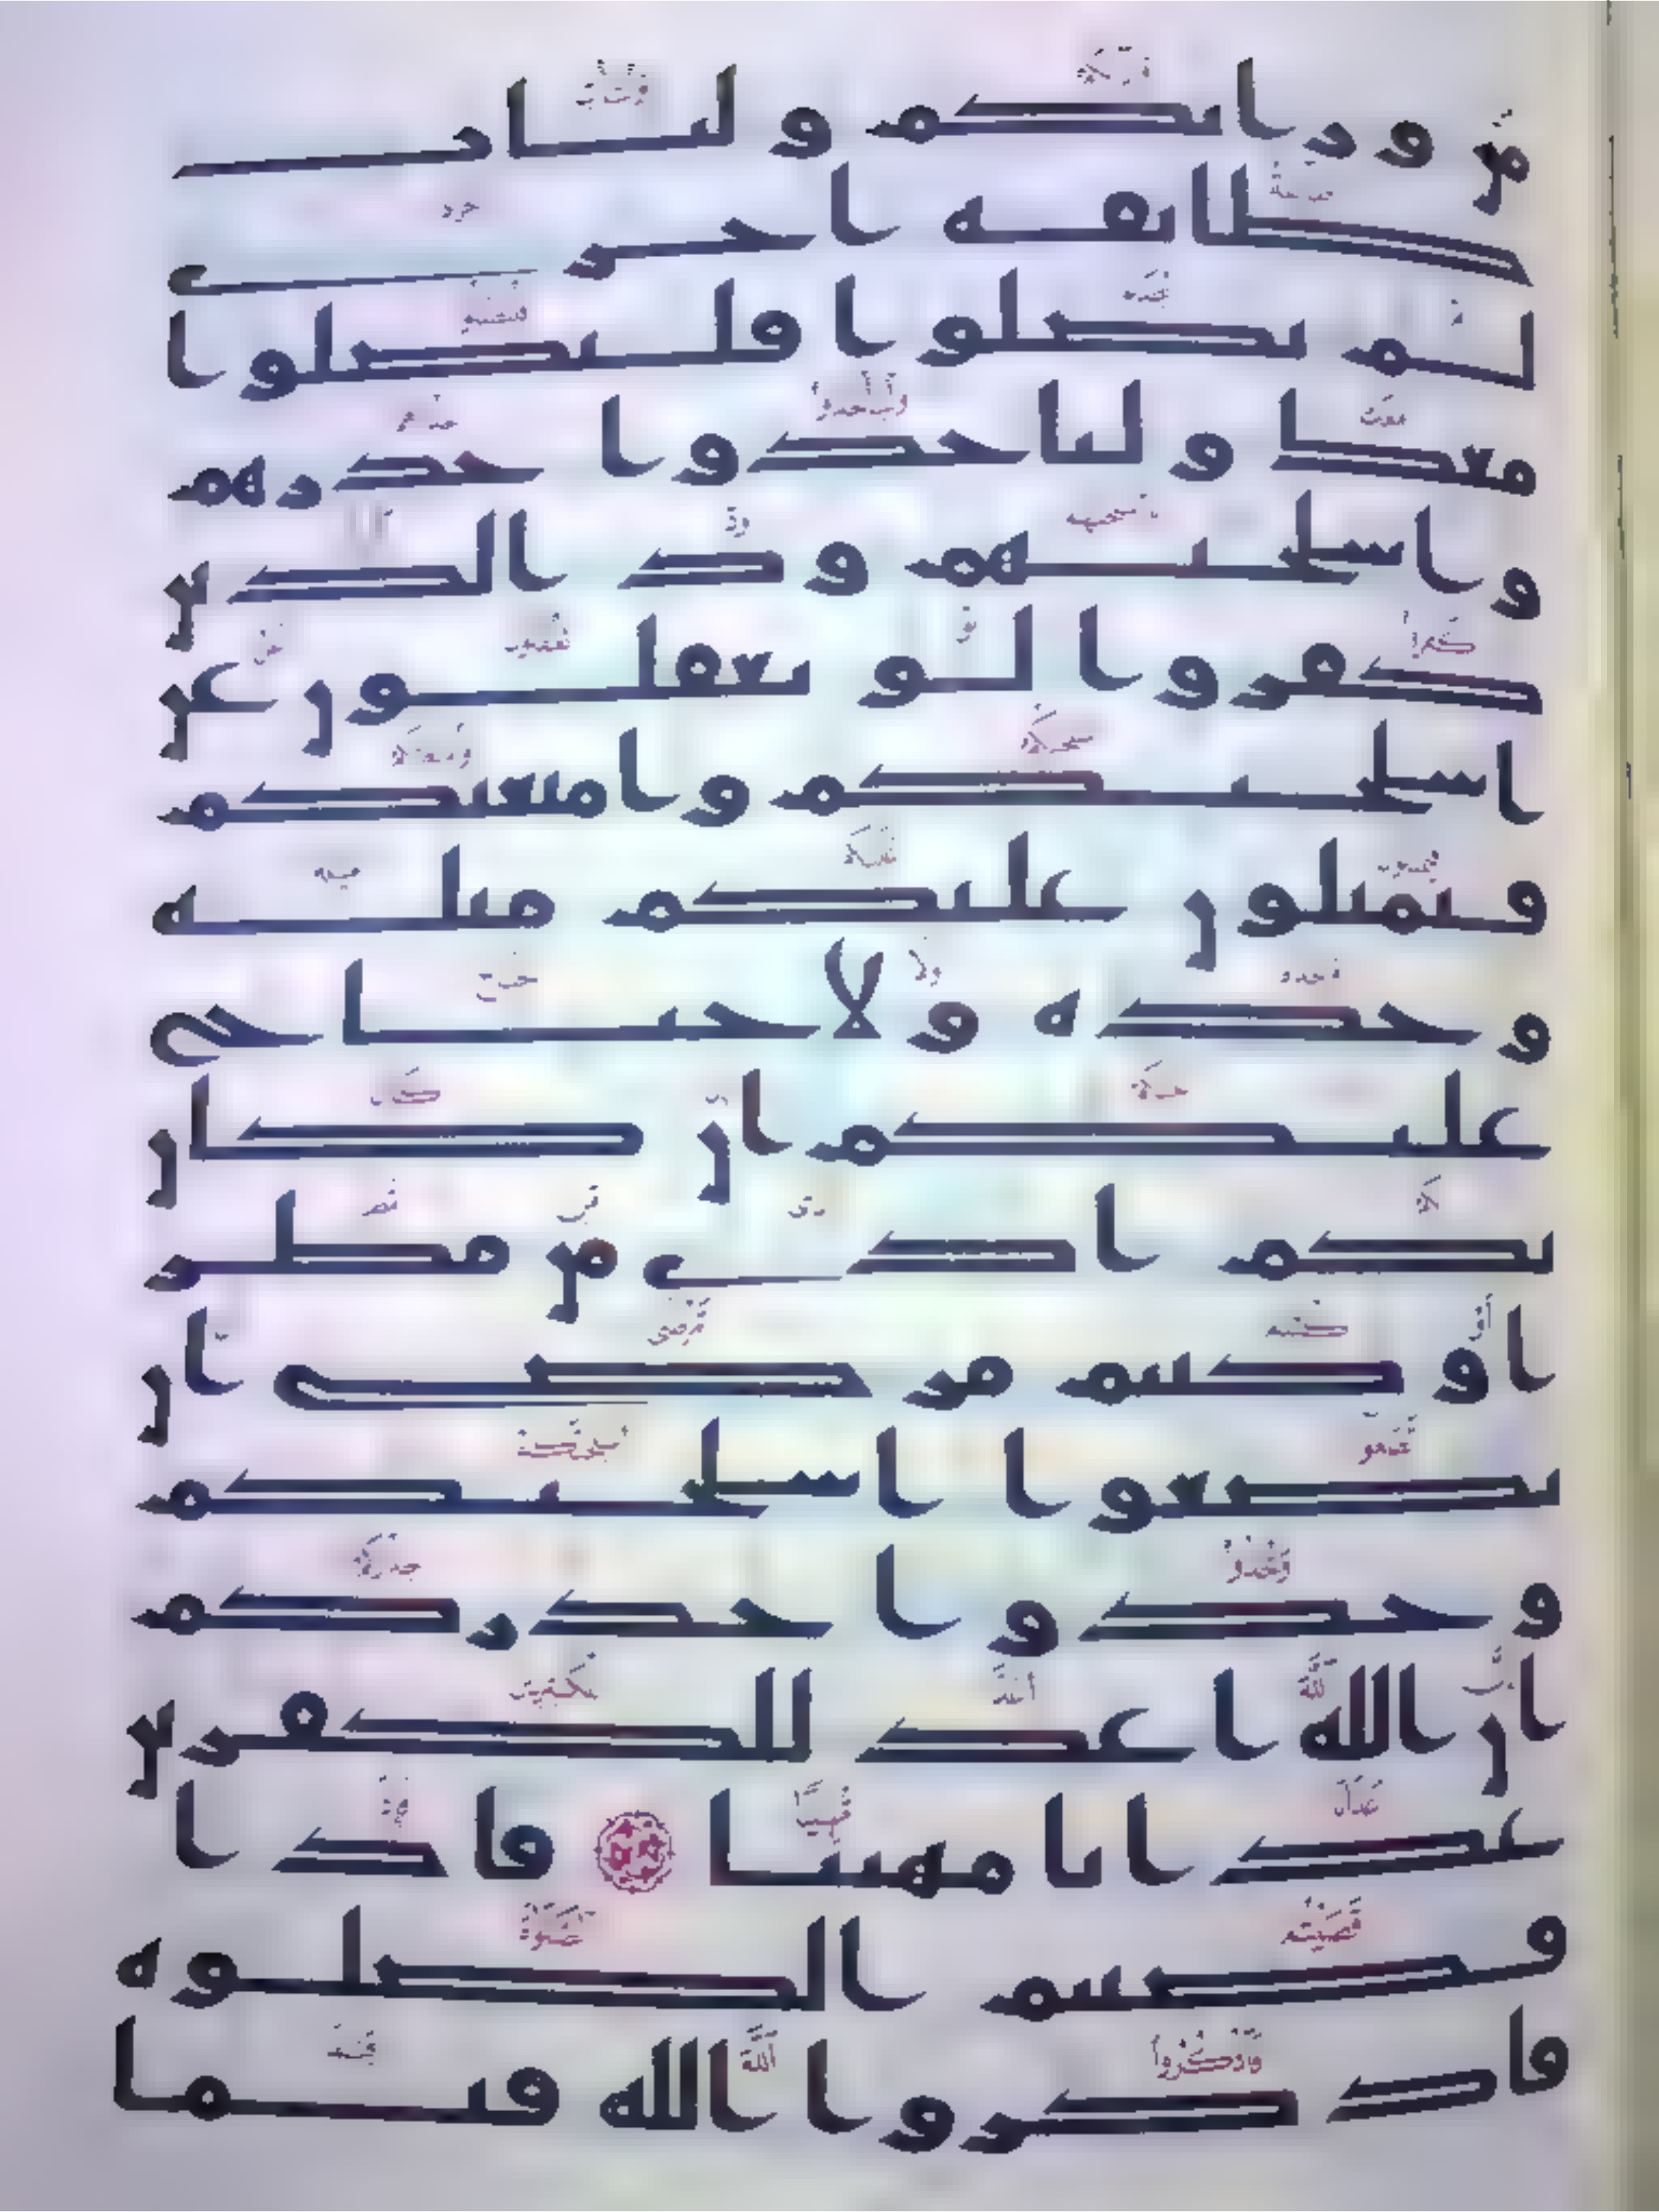 من ورايكم ولتات
طايفه اخرى
لم يصلوا فليصلوا
معك ولياخذوا حذرهم
واسلحتهم ود الذين
كفروا لو تغفلون عن
اسلحتكم وامتعتكم
فيميلون عليكم ميله
وحده ولا جناح
عليكم ان كان
بكم اذى من مطر
او كنتم مرضى ان
تضعوا اسلحتكم
وخذوا حذركم
ان الله اعد للكفرين
عذابا مهينا فاذا
قضيتم الصلوه
فاذكروا الله قيما